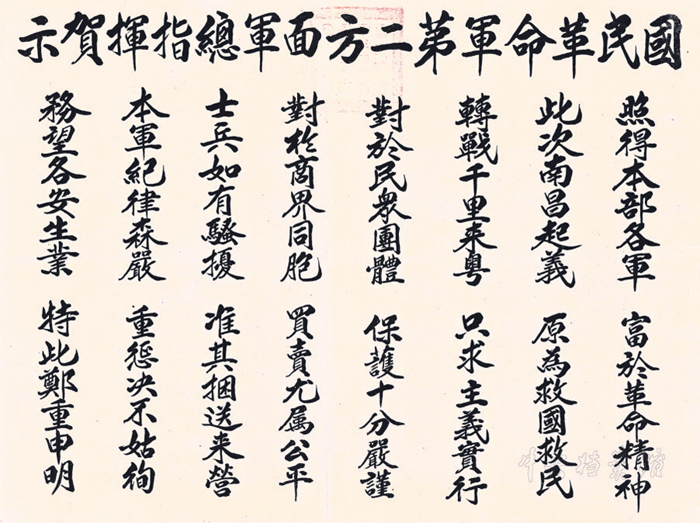 國民革命軍第二方面軍總指揮賀示
照得本部各軍 富於革命精神
此次南昌起義 原為救國救民
轉戰千里來粤 只求主義實行
對於民衆團體 保護十分嚴謹
對於商界同胞 買賣尤属公平
士兵如有騷擾 准其捆送來營
本軍紀律森嚴 重惩决不姑徇
務望各安生業 特此鄭重申明